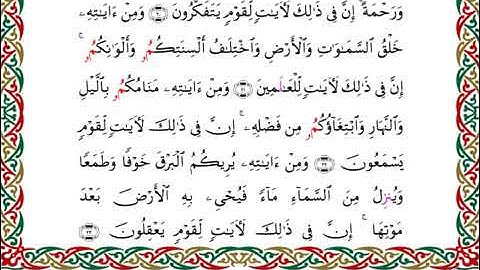 وَرَحْمَةً ۚ إِنَّ فِى ذَٰلِكَ لَأٓيَٰتٍ لِّقَوْمٍ يَتَفَكَّرُونَ ۝٢٠ وَمِنْ ءَايَٰتِهِۦ
خَلْقُ ٱلسَّمَٰوَٰتِ وَٱلْأَرْضِ وَٱخْتِلَٰفُ أَلْسِنَتِكُمُۥ وَأَلْوَٰنِكُمُۥٓ ۚ
إِنَّ فِى ذَٰلِكَ لَأٓيَٰتٍ لِّلْعَٰلَمِينَ ۝٢١ وَمِنْ ءَايَٰتِهِۦ مَنَامُكُمُۥ بِٱلَّيْلِ
وَٱلنَّهَارِ وَٱبْتِغَآؤُكُمُۥ مِن فَضْلِهِۦٓ ۚ إِنَّ فِى ذَٰلِكَ لَأٓيَٰتٍ لِّقَوْمٍ
يَسْمَعُونَ ۝٢٢ وَمِنْ ءَايَٰتِهِۦ يُرِيكُمُ ٱلْبَرْقَ خَوْفًا وَطَمَعًا
وَيُنزِلُ مِنَ ٱلسَّمَآءِ مَآءً فَيُحْىِۦ بِهِ ٱلْأَرْضَ بَعْدَ
مَوْتِهَآ ۚ إِنَّ فِى ذَٰلِكَ لَأٓيَٰتٍ لِّقَوْمٍ يَعْقِلُونَ ۝٢٣